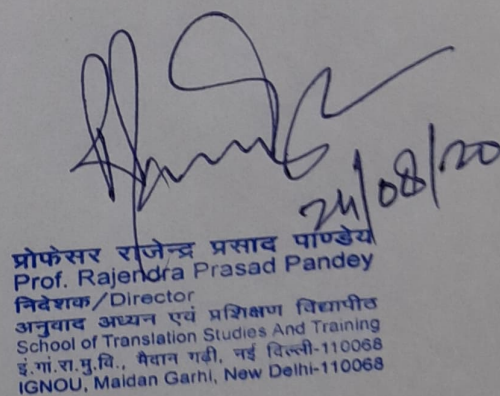 24/08/20
प्रोफेसर राजेन्द्र प्रसाद पाण्डेय
Prof. Rajendra Prasad Pandey
निदेशक/Director
अनुवाद अध्यन एवं प्रशिक्षण विद्यापीठ
School of Translation Studies And Training
इं.गां.रा.मु.वि., मैदान गढ़ी, नई दिल्ली-110068
IGNOU, Maidan Garhi, New Delhi-110068